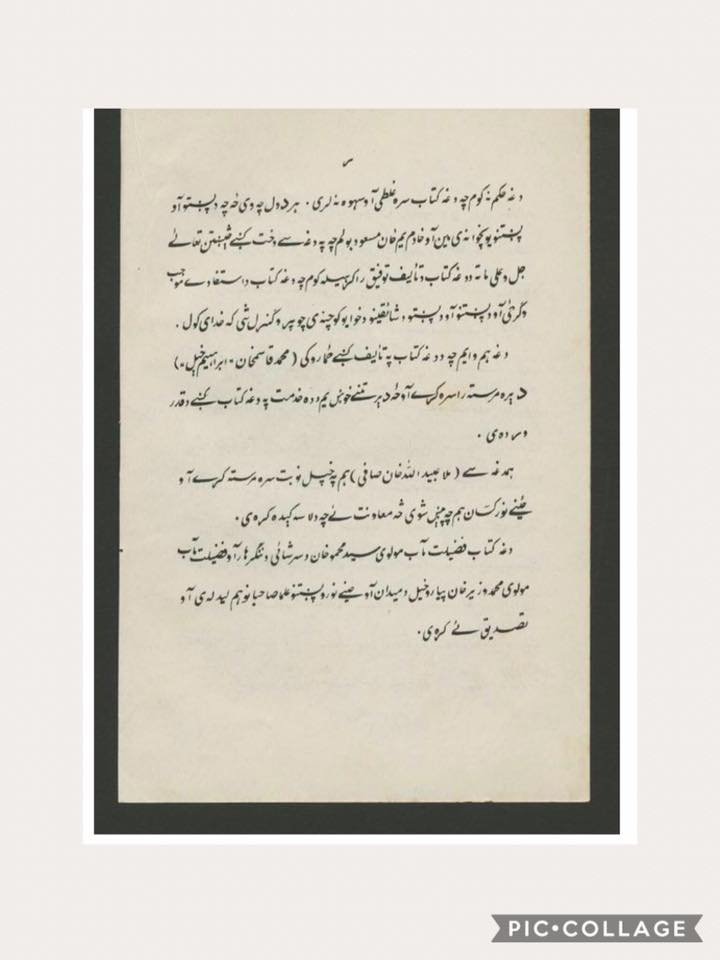 دغه حکم نه کوم چه دغه کتاب سره غلطی آو سهوه نه لری. هر دول چه وی خه چه د پښتو آو
پښتنو پوښوا نه ی مین آو خادم یم خان مسعود بولم چه په دغه سے وخت کښے څښتن تعالے
جل و علی ما ته د دغه کتاب د تألیف توفیق راکړ هیله کوم چه دغه کتاب د استفادے موجب
وګرځی آو د پښتنو آو د پښتو د شائقینو د خوا یو کوچنه ی چوپړ و ګنرل شی که خدای کول.
دغه هم وایم چه د دغه کتاب په تألیف کښے ځما روکی (محمد قاسمخان - ابراهیم خیل -)
ډیره مرسته را سره کړے آو خه ډیر تنے خوښ یم د ده خدمت په دغه کتاب کښے د قدر
وړ ده ی.
همدغه سے (ملا عبید الله خان صافی) هم په خپل نوبت سره مرسته کړے آو
ځینے نور کسان هم چه پیښ شوی خه معاونت ئے چه د لاسه کېده کړه ی.
دغه کتاب فضیلت مآب مولوی سید محمود خان د سرشاهی د ننګرهار آو فضیلت مآب
مولوی محمد وزیر خان پیارو خیل د میدان آو ځینے نورو پښتنو علما صاحبانو هم لیدلی آو
تصدیق ئے کړه ی.
PIC•COLLAGE